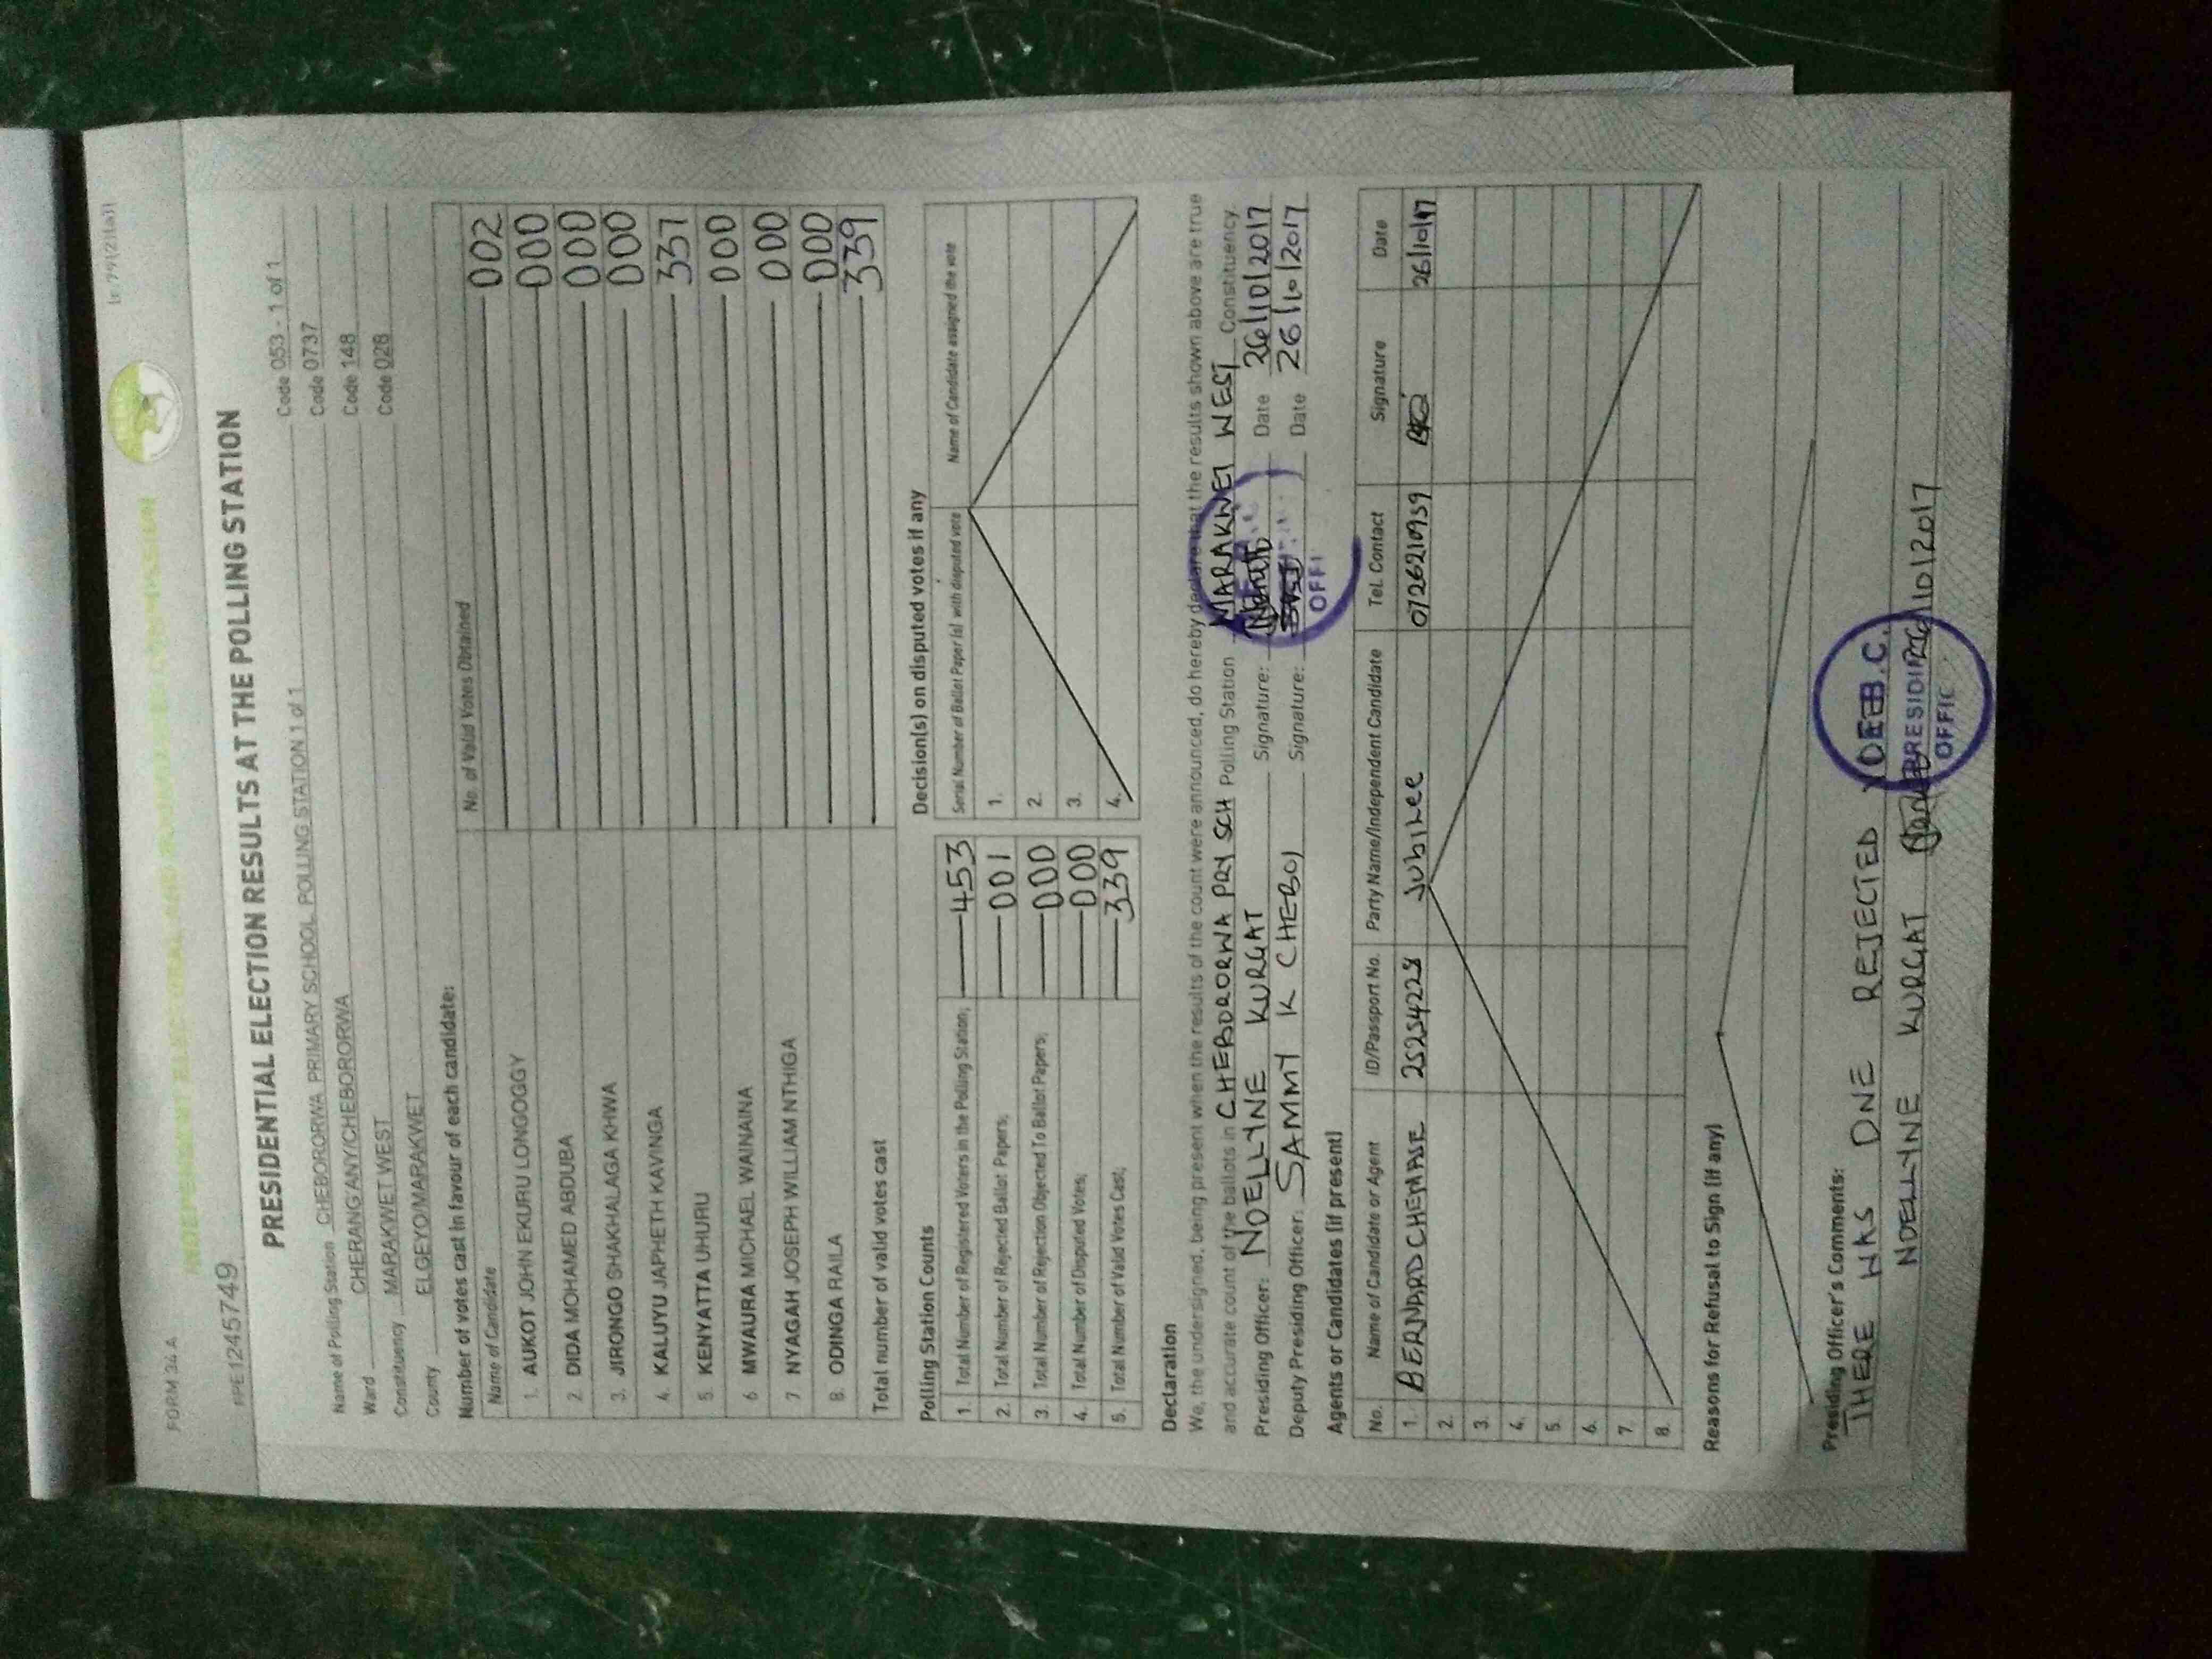 FORM 34 A
INDEPENDENT ELECTORAL AND BOUNDARIES COMMISSION
PRESIDENTIAL ELECTION RESULTS AT THE POLLING STATION
Name of Polling Station CHEBORORWA PRIMARY SCHOOL POLLING STATION 1 of 1 Code 053 - 1 of 1
Ward CHERANG'ANY/CHEBORORWA Code 0737
Constituency MARAKWET WEST Code 148
County ELGEYO/MARAKWET Code 028
Number of votes cast in favour of each candidate:
Name of Candidate No. of Valid Votes Obtained
1. AUKOT JOHN EKURU LONGOGGY 002
2 DIDA MOHAMED ABDUBA 000
3. JIRONGO SHAKHALAGA KHWA 000
4. KALUYU JAPHETH KAVINGA 000
5 KENYATTA UHURU 337
6 MWAURA MICHAEL WAINAINA 000
7 NYAGAH JOSEPH WILLIAM NTHIGA 000
8. ODINGA RAILA 000
Total number of valid votes cast 339
Polling Station Counts
1. Total Number of Registered Voters in the Polling Station; 453
2. Total Number of Rejected Ballot Papers; 001
3. Total Number of Rejection Objected To Ballot Papers; 000
4. Total Number of Disputed Votes; 000
5. Total Number of Valid Votes Cast; 339
Decision(s) on disputed votes if any
Serial Number of Ballot Paper (s) with disputed vote Name of Candidate assigned the vote
1.
2.
3.
4.
Declaration
We, the undersigned, being present when the results of the count were announced, do hereby declare that the results shown above are true
and accurate count of the ballots in CHEBORORWA PRY SCH Polling Station MARAKWET WEST Constituency.
Presiding Officer: NOELLYNE KURGAT Signature: Date 26/10/2017
Deputy Presiding Officer: SAMMY K CHEBOI Signature: Date 26/10/2017
OFFI
Agents or Candidates (if present)
No. Name of Candidate or Agent ID/Passport No. Party Name/Independent Candidate Tel. Contact Signature Date
1. BERNARD 25254228 Jubilee 0726210959 26/10/17
2.
3.
4.
5.
6.
7.
8.
Reasons for Refusal to Sign (if any)
Presiding Officer's Comments:
THERE WAS ONE REJECTED
NOELLYNE KURGAT 10/2017
PRESIDING
OFFIC